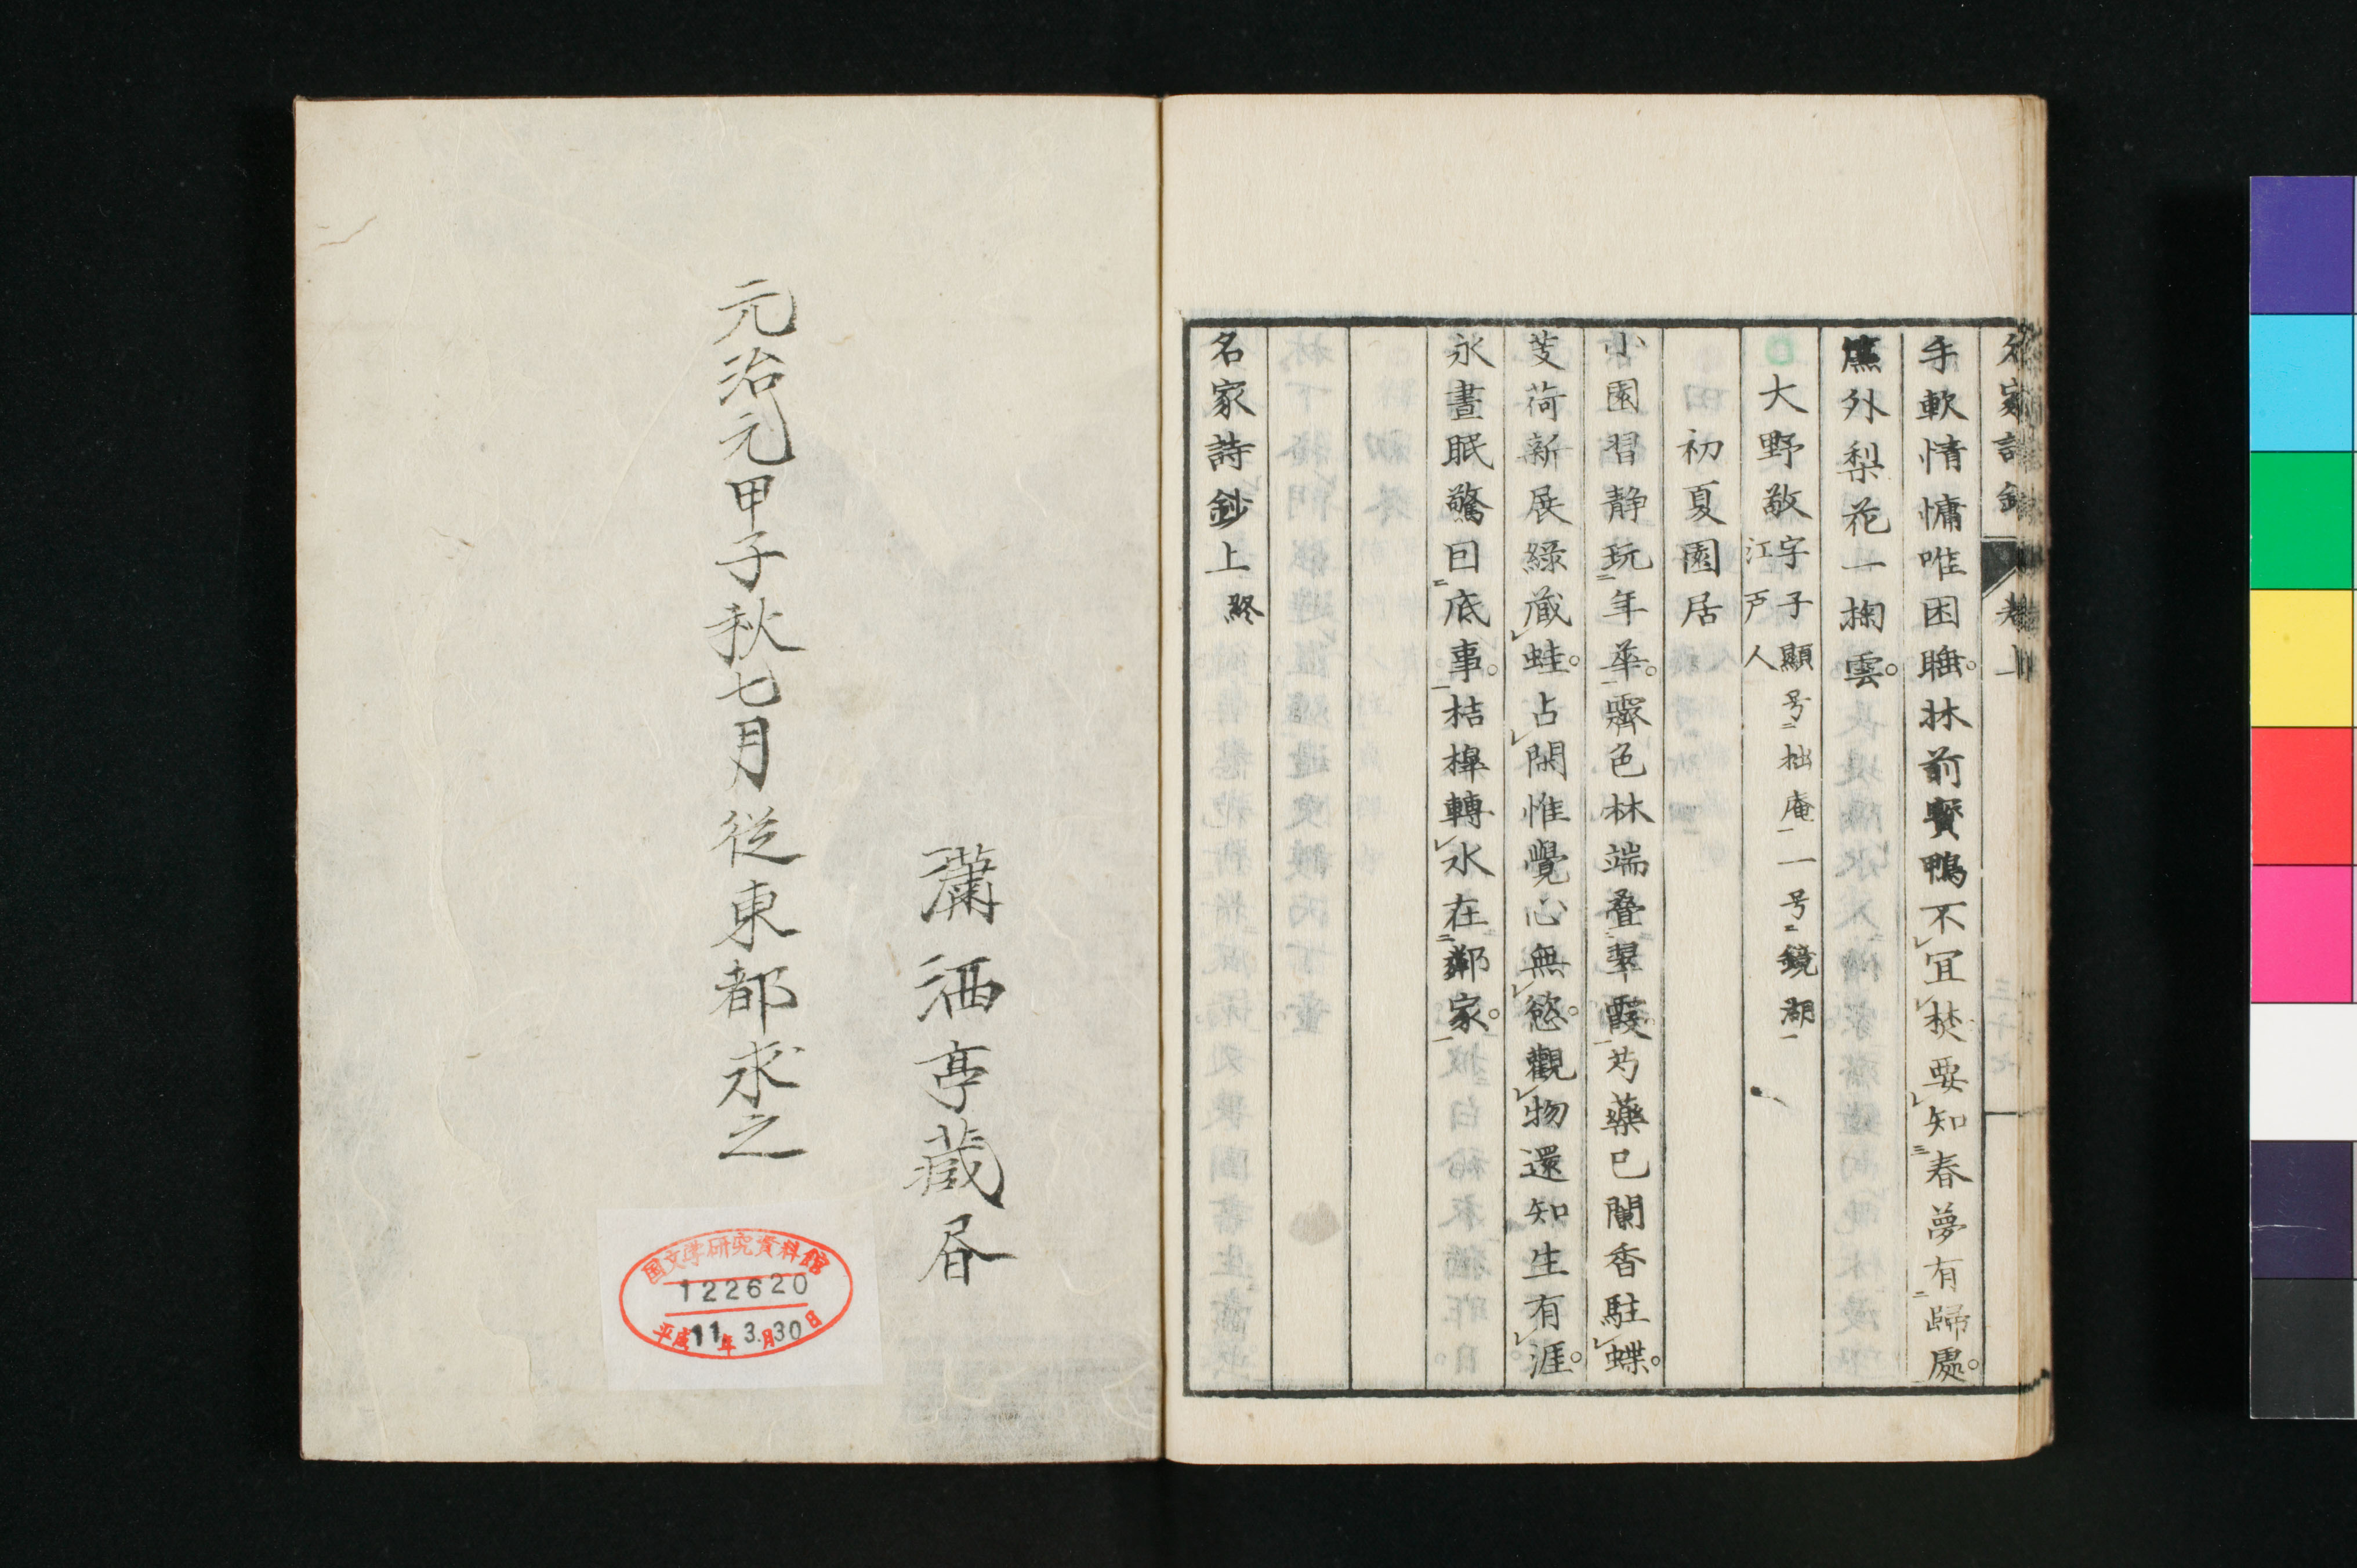 名家詩鈔 卷上
手軟情慵唯困睡牀前寳鴨不宜焚要知春夢有歸處
簾外梨花一掬雲
大野敬字子顯号拙庵一号鏡湖
江戸人
初夏園居
小園習静玩年華霽色林端叠翠霞芍藥已闌香駐蝶
芰荷新展綠蔵蛙占閑惟覺心無慾觀物還知生有涯
永晝眠驚曰底事桔槹轉水在鄰家
名家詩鈔上終
瀟洒亭藏
元治元甲子秋七月從東都求之
国文学研究資料館
122620
平成11年3.月30日